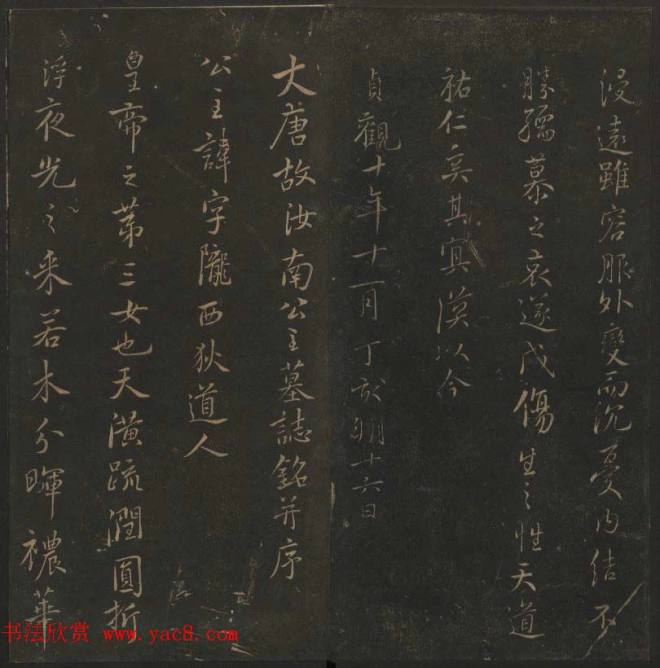 浸遠雖容服外變而沉憂内结不
勝孺慕之哀遂戊傷生之性天道
祐仁奚其冥漠以今
貞觀十年十一月丁亥朔十六日
大唐故汝南公主墓誌銘并序
公主諱字隴西狄道人
皇帝之第三女也天潢疏潤圓折
浮夜光之来若木分暉襛華
书法欣赏 www.yac8.com